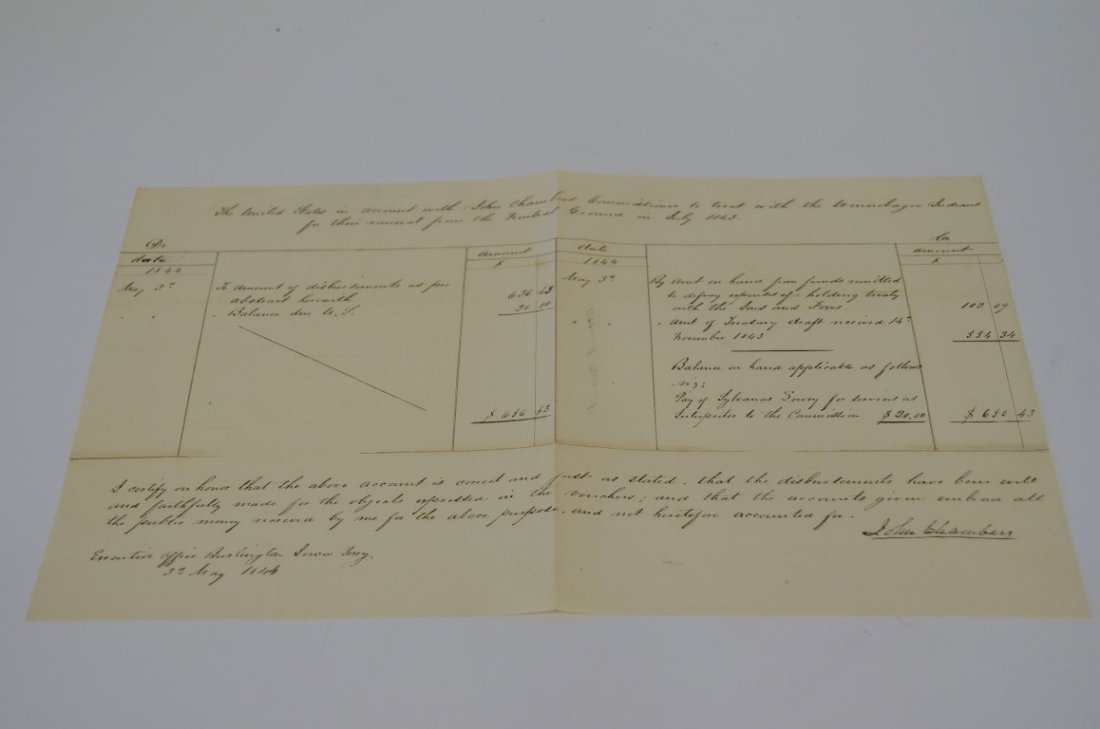 The United States in account with John Chambers Commissioner to treat with the Winnebagoe Indians
for their removal from the Neutral Ground in July 1843.
Dr
Cr
date
amount
date
amount
1844
$
1844
$
May 3d
To amount of disbursements as per
abstract herewith
636 43
" Balance due U. S.
20 00
$ 656 43
May 3d
By Amt on hand from funds remitted
to defray expenses of holding treaty
with the Sacs and Foxes
102 09
" "
" Amt of Treasury draft received 14th
November 1843
554 34
Balance on hand applicable as follows
viz;
Pay of Sylvanus Dewey for services as
Interpreter to the Commission $ 20,00
$ 656 43
I certify on honor that the above account is correct and just as stated. that the disbursements have been well
and faithfully made for the objects expressed in the vouchers; and that the accounts given embrace all
the public money received by me for the above purpose, and not heretofore accounted for.
John Chambers
Executive Office Burlington Iowa Terry
3d May 1844